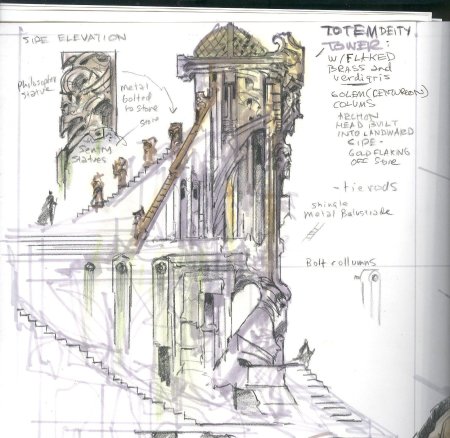 SIDE ELEVATION
philosopher
statue
metal
bolted
to stone
stone
Sentry
statues
TOTEM DEITY
TOWER:
W/FLAKED
BRASS and
verdigris
GOLEM (CENTURION)
COLUMS
ARCHON
HEAD BUILT
INTO LANDWARD
SIDE -
GOLD FLAKING
OFF STONE
- tie rods
shingle
Metal Balustrade
Bolt collumns